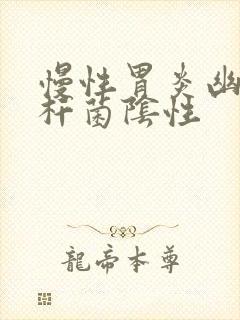 慢性胃炎幽
杆菌陰性
龍帝本尊